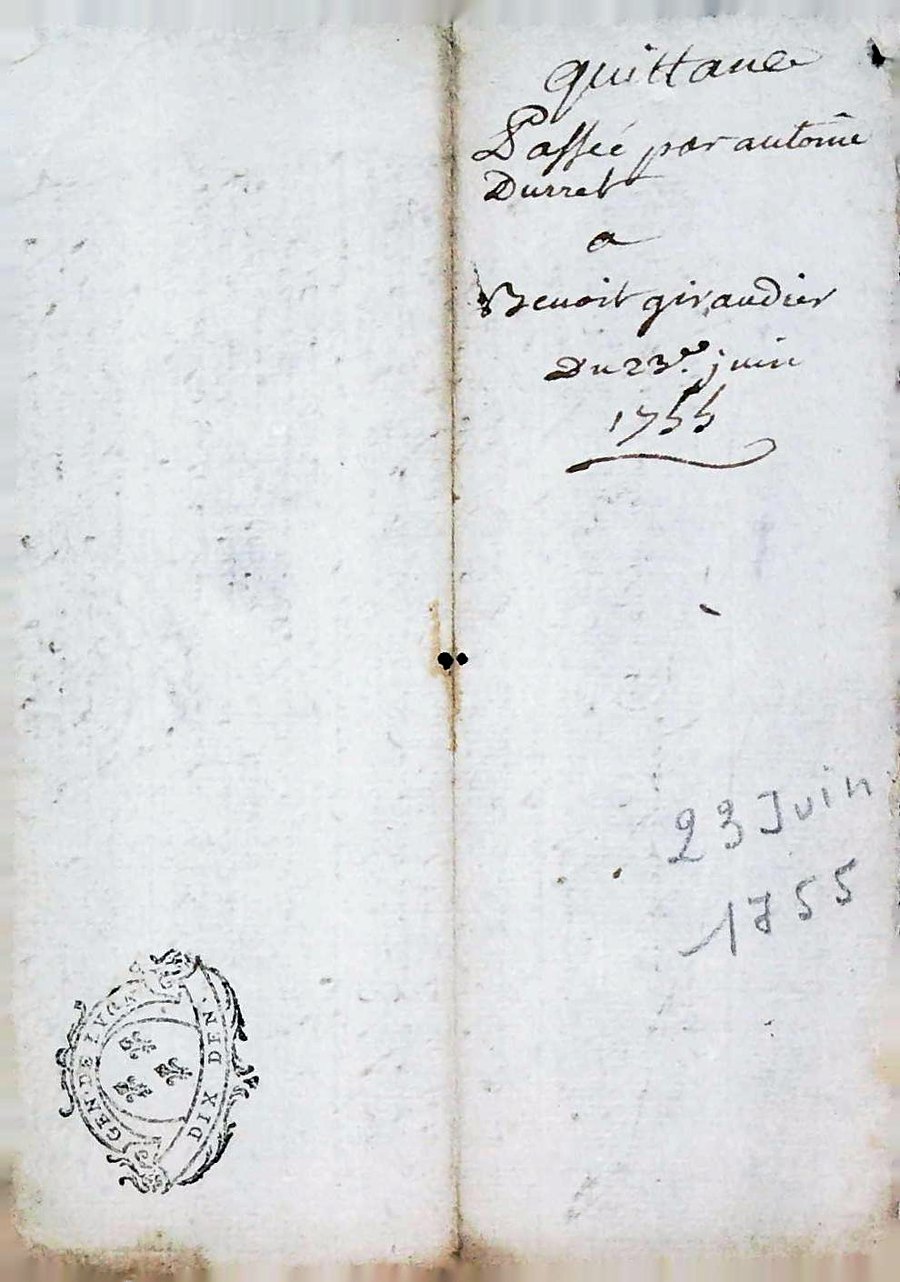 quittance
Passée par antoine
Durret
a
Benoit giraudier
Du 23e. juin
1755
23 Juin
1755
GEN·DE LYON
DIX DEN